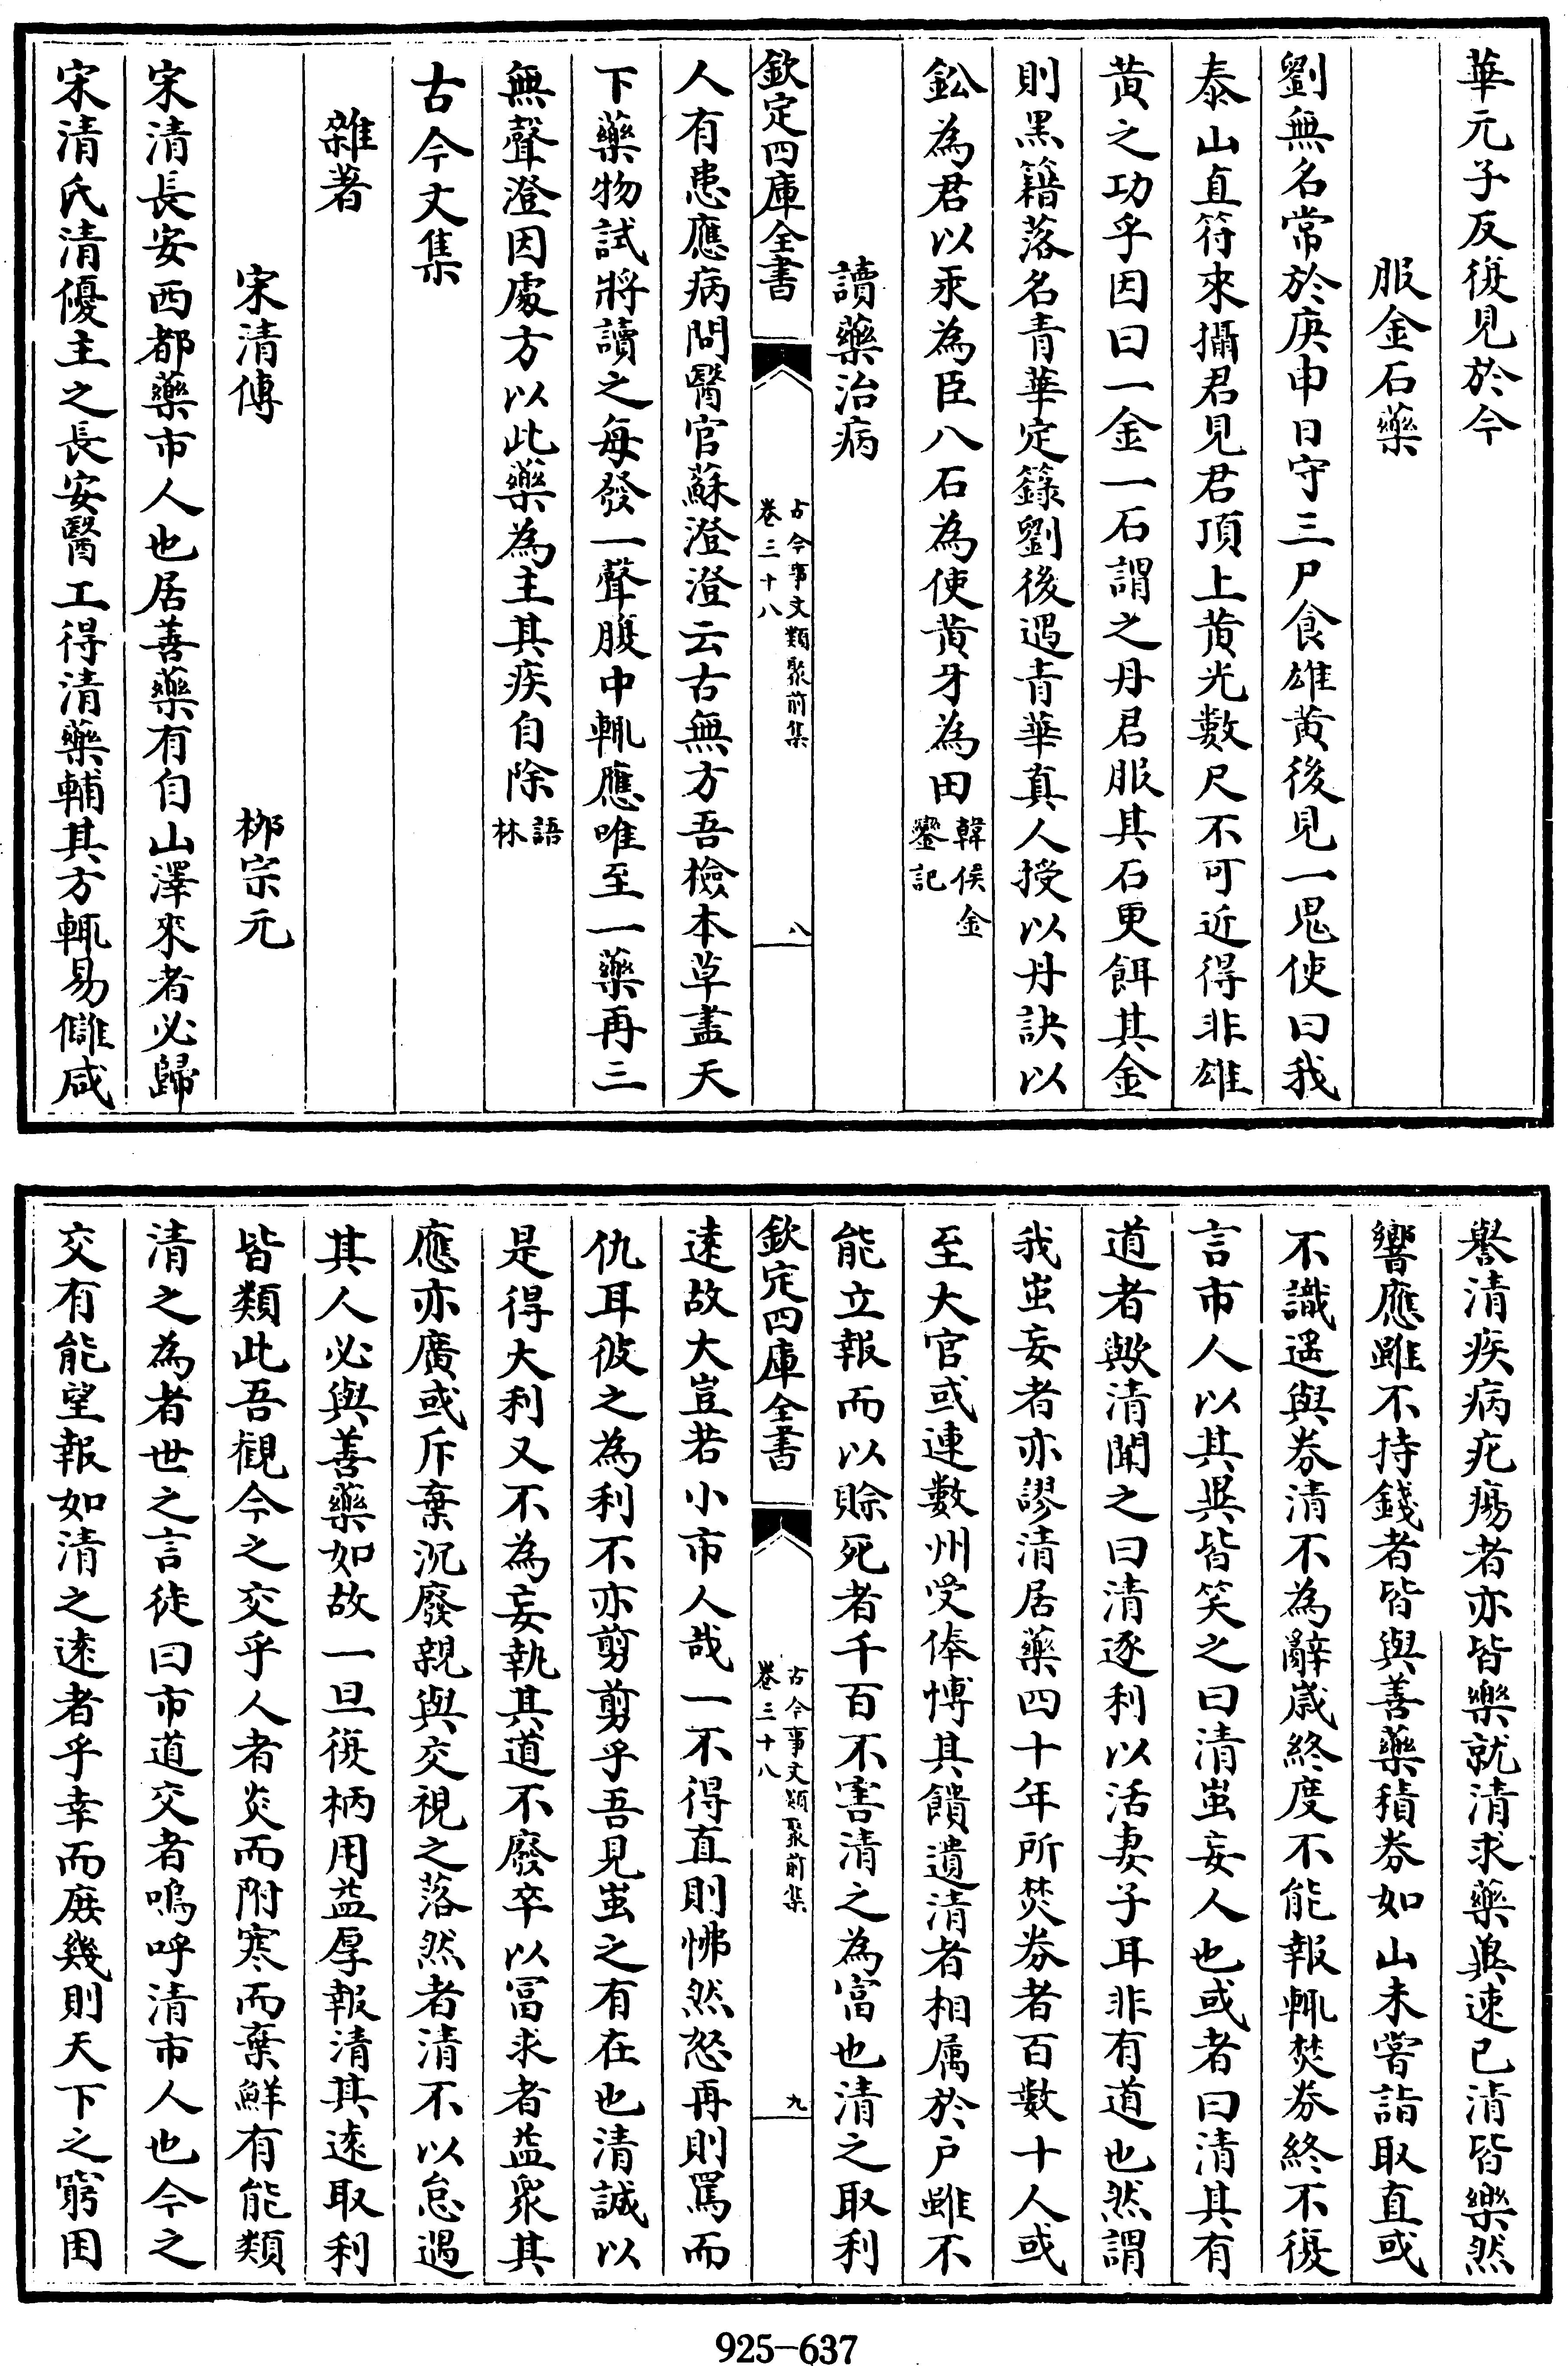 華元子反復見於今
服金石藥
劉無名常於庚申日守三尸食雄黄後見一鬼使曰我
泰山直符來攝君見君頂上黄光數尺不可近得非雄
黄之功乎因曰一金一石謂之丹君服其石更餌其金
則黒籍落名青華定籙劉後遇青華真人授以丹訣以
鈆為君以汞為臣八石為使黄牙為田韓侯金鑾記
讀藥治病
欽定四庫全書
古今事文類聚前集
卷三十八
八
人有患應病問醫官蘇澄澄云古無方吾檢本草盡天
下藥物試將讀之每發一聲腹中輒應唯至一藥再三
無聲澄因處方以此藥為主其疾自除語林
古今文集
雜著
宋清傳 栁宗元
宋清長安西都藥市人也居善藥有自山澤來者必歸
宋清氏清優主之長安醫工得清藥輔其方輒易讎咸
譽清疾病疕瘍者亦皆樂就清求藥兾速已清皆樂然
響應雖不持錢者皆與善藥積券如山未嘗詣取直或
不識遥與券清不為辭嵗終度不能報輒焚券終不復
言市人以其異皆笑之曰清蚩妄人也或者曰清其有
道者歟清聞之曰清逐利以活妻子耳非有道也然謂
我蚩妄者亦謬清居藥四十年所焚券者百數十人或
至大官或連數州受俸博其饋遺清者相属於户雖不
能立報而以賖死者千百不害清之為富也清之取利
欽定四庫全書
古今事文類聚前集
卷三十八
九
逺故大豈若小市人哉一不得直則怫然怒再則罵而
仇耳彼之為利不亦剪剪乎吾見蚩之有在也清誠以
是得大利又不為妄執其道不廢卒以冨求者益衆其
應亦廣或斥棄沉廢親與交視之落然者清不以怠遇
其人必與善藥如故一旦復柄用益厚報清其逺取利
皆類此吾觀今之交乎人者炎而附寒而棄鮮有能類
清之為者世之言徒曰市道交者嗚呼清市人也今之
交有能望報如清之逺者乎幸而庶幾則天下之窮困
925-637